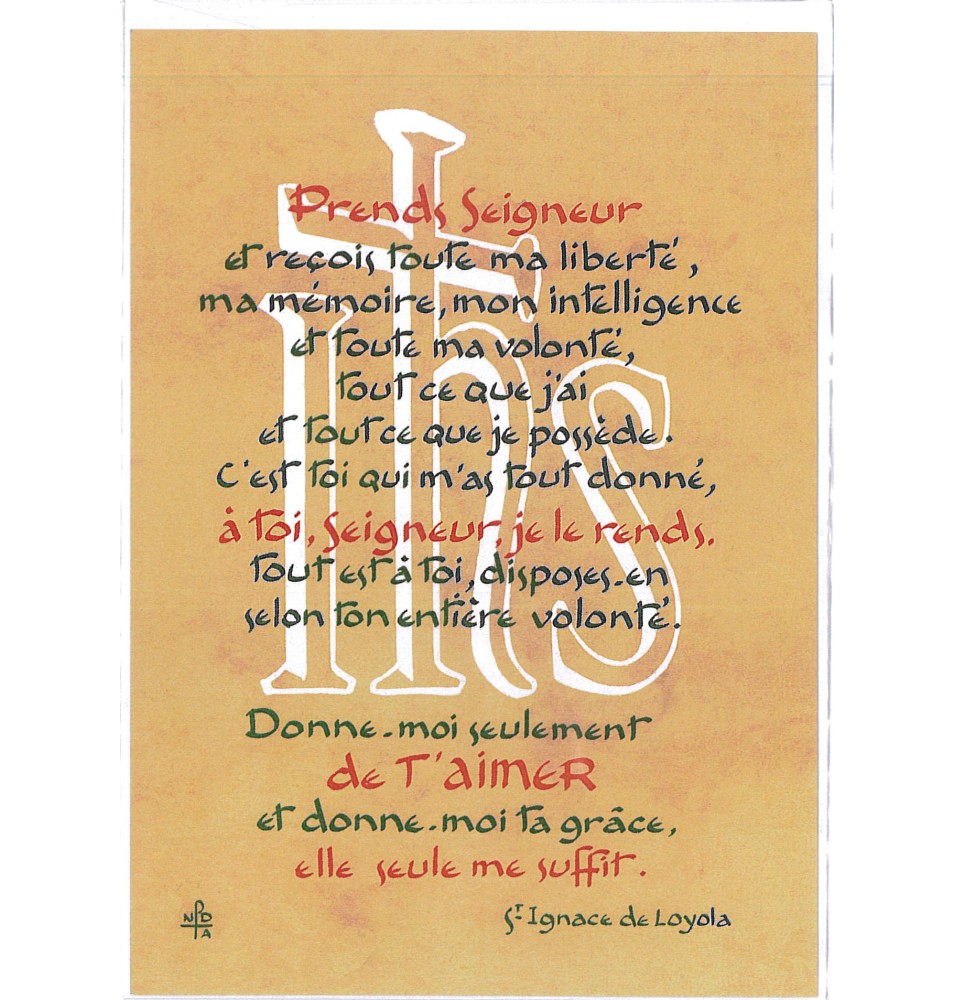 IHS
Prends Seigneur
et reçois toute ma liberté,
ma mémoire, mon intelligence
et toute ma volonté,
tout ce que j'ai
et tout ce que je possède.
C'est toi qui m'as tout donné,
à toi, Seigneur, je le rends.
Tout est à toi, disposes-en
selon ton entière volonté.
Donne-moi seulement
de T'AIMER
et donne-moi ta grâce,
elle seule me suffit.
St Ignace de Loyola
N P D
A